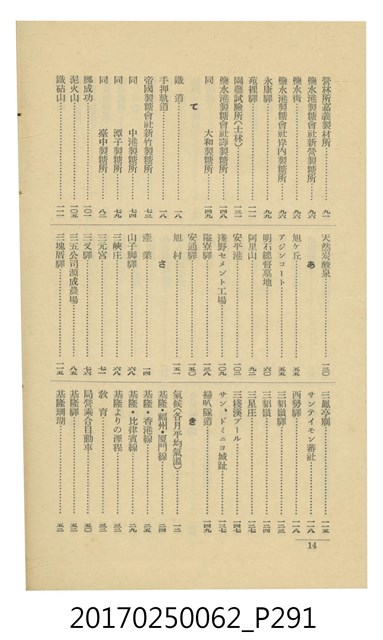 營林所嘉義製材所………九一
鹽水港製糖會社新營製糖所………九六
鹽水街………九六
鹽水港製糖會社岸內製糖所………九六
永康驛………九八
苑裡驛
園藝試驗所(士林)
鹽水港製糖會社壽製糖所
同 大和製糖所………一四九
て
鐵道………一八
手押軌道………一八
帝國製糖會社新竹製糖所………七三
同 中港製糖所………七四
同 潭子製糖所………七九
同 臺中製糖所………八二
鄭成功………一〇一
泥火山………一〇五
鐵砧山………一一一
天然炭酸泉………一三〇
あ
旭ケ丘
アジンコート………五五
明石總督墓地
阿里山………九二
安平港
淺野セメント工場
安通驛
旭村………一五一
さ
產業………一四
山子脚驛………六八
三峽庄………六八
三元宮………七一
三叉驛………七六
三五公司源成農場………八五
三塊厝驛………一一五
三鳳亭廟………一一五
サンテイモン蕃社………一一八
西勢驛………一一八
三貂嶺驛
三貂嶺
三星庄
三棧溪プール………一四七
サン、ドミニコ城趾………一三七
掃叭隧道………一四九
き
氣候(各月平均氣溫)………一二
基隆・福州・廈門線………二四
基隆・香港線………二五
基隆・比律賓線………二九
基隆よりの浬程………三二
教育………三三
局營乘合自動車………五〇
基隆驛………五二
基隆珊瑚………五三
14
20170250062_P291